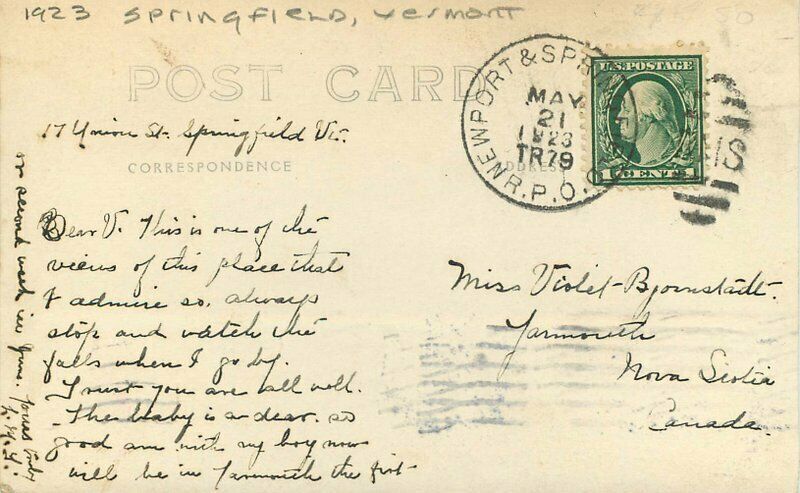 1923 SPRINGFIELD, VERMONT
POST CARD
17 Union St. Springfield Vt.
CORRESPONDENCE
ADDRESS
NEWPORT & SPRINGFIELD
R.P.O.
MAY
21
1923
TR79
U.S. POSTAGE
CENTS
Dear V. This is one of the
views of this place that
I admire so. always
stop and watch the
falls when I go by.
I trust you are all well.
The baby is a dear. so
good am with my boy now
will be in Yarmouth the first
or second week in June. Yours truly
Miss Violet Bjornstadt.
Yarmouth
Nova Scotia
Canada.